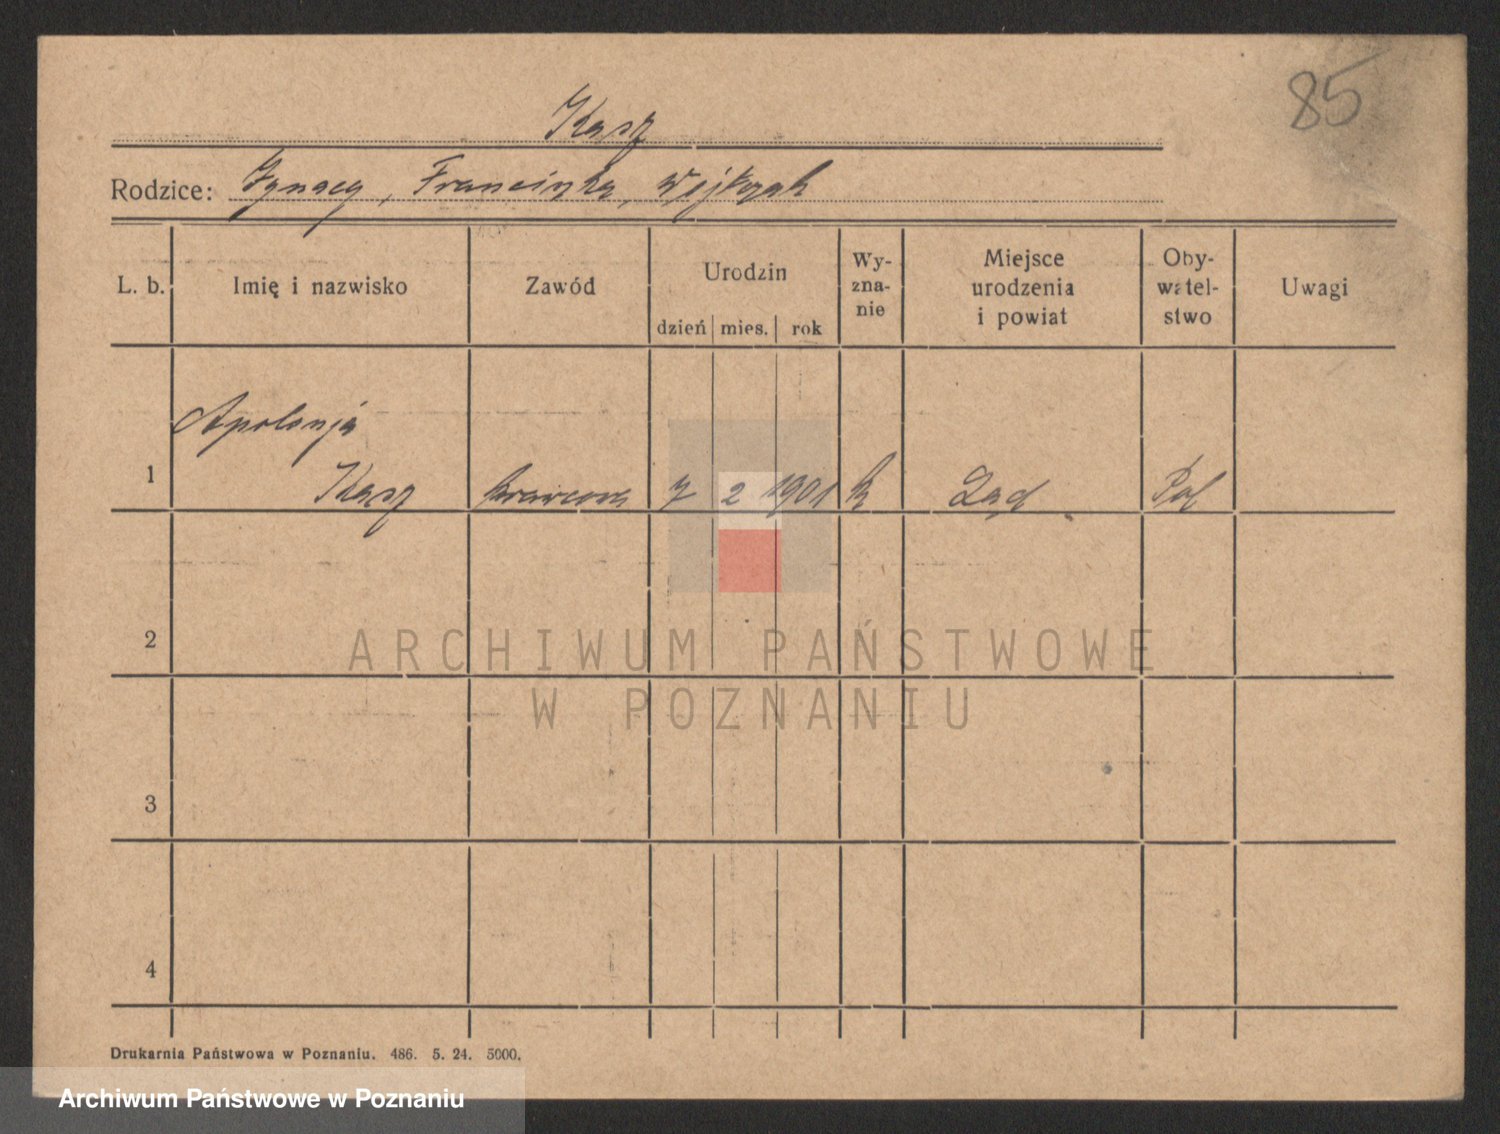 85
Kasz
Rodzice: Ignacy, Franciszka, Wojtczak
L. b. Imię i nazwisko Zawód Urodzin dzień mies. rok Wy-zna-nie Miejsce urodzenia i powiat Oby-watel-stwo Uwagi
Apolonja
1 Kasz krawcowa 7 2 1901 k Ląd Pol
2
3
4
ARCHIWUM PAŃSTWOWE
W POZNANIU
Drukarnia Państwowa w Poznaniu. 486. 5. 24. 5000.
Archiwum Państwowe w Poznaniu